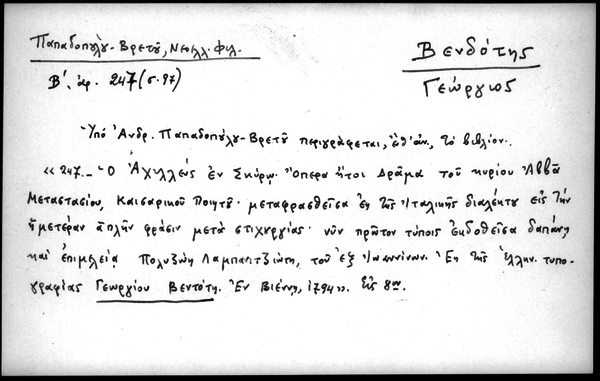 Παπαδοπούλου-Βρετοῦ, Νεοελλ. Φιλ.
Βενδότης
Β΄. ἀρ. 247 (σ. 97)
Γεώργιος
Ὑπὸ Ἀνδρ. Παπαδοπούλου-Βρετοῦ περιγράφεται, ἔνθ' ἀν., τὸ βιβλίον.
«247._ Ὁ Ἀχιλλεὺς ἐν Σκύρῳ. Ὄπερα ἤτοι Δρᾶμα τοῦ κυρίου Ἀββᾶ
Μεταστασίου, Καισαρικοῦ Ποιητοῦ· μεταφρασθεῖσα ἐκ τῆς Ἰταλικῆς διαλέκτου εἰς τὴν
ἡμετέραν ἁπλῆν φράσιν μετὰ στιχουργίας· νῦν πρῶτον τύποις ἐκδοθεῖσα δαπάνῃ
καὶ ἐπιμελείᾳ Πολυζώη Λαμπανιτζιώτη, τοῦ ἐξ Ἰωαννίνων. Ἐκ τῆς ἑλλην. τυπο-
γραφίας Γεωργίου Βεντότη. Ἐν Βιέννῃ, 1794». Εἰς 8ον.